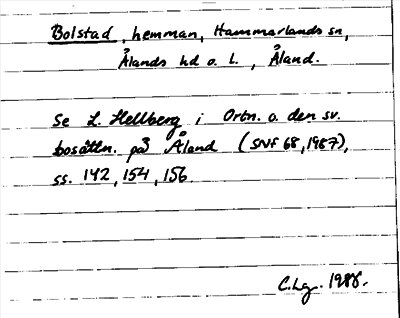 Bolstad, hemman, Hammarlands sn,
Ålands hd o. l., Åland.
Se L. Hellberg i Ortn. o. den sv.
bosättn. på Åland (SNF 68, 1987),
ss. 142, 154, 156.
C.Lg. 1988.